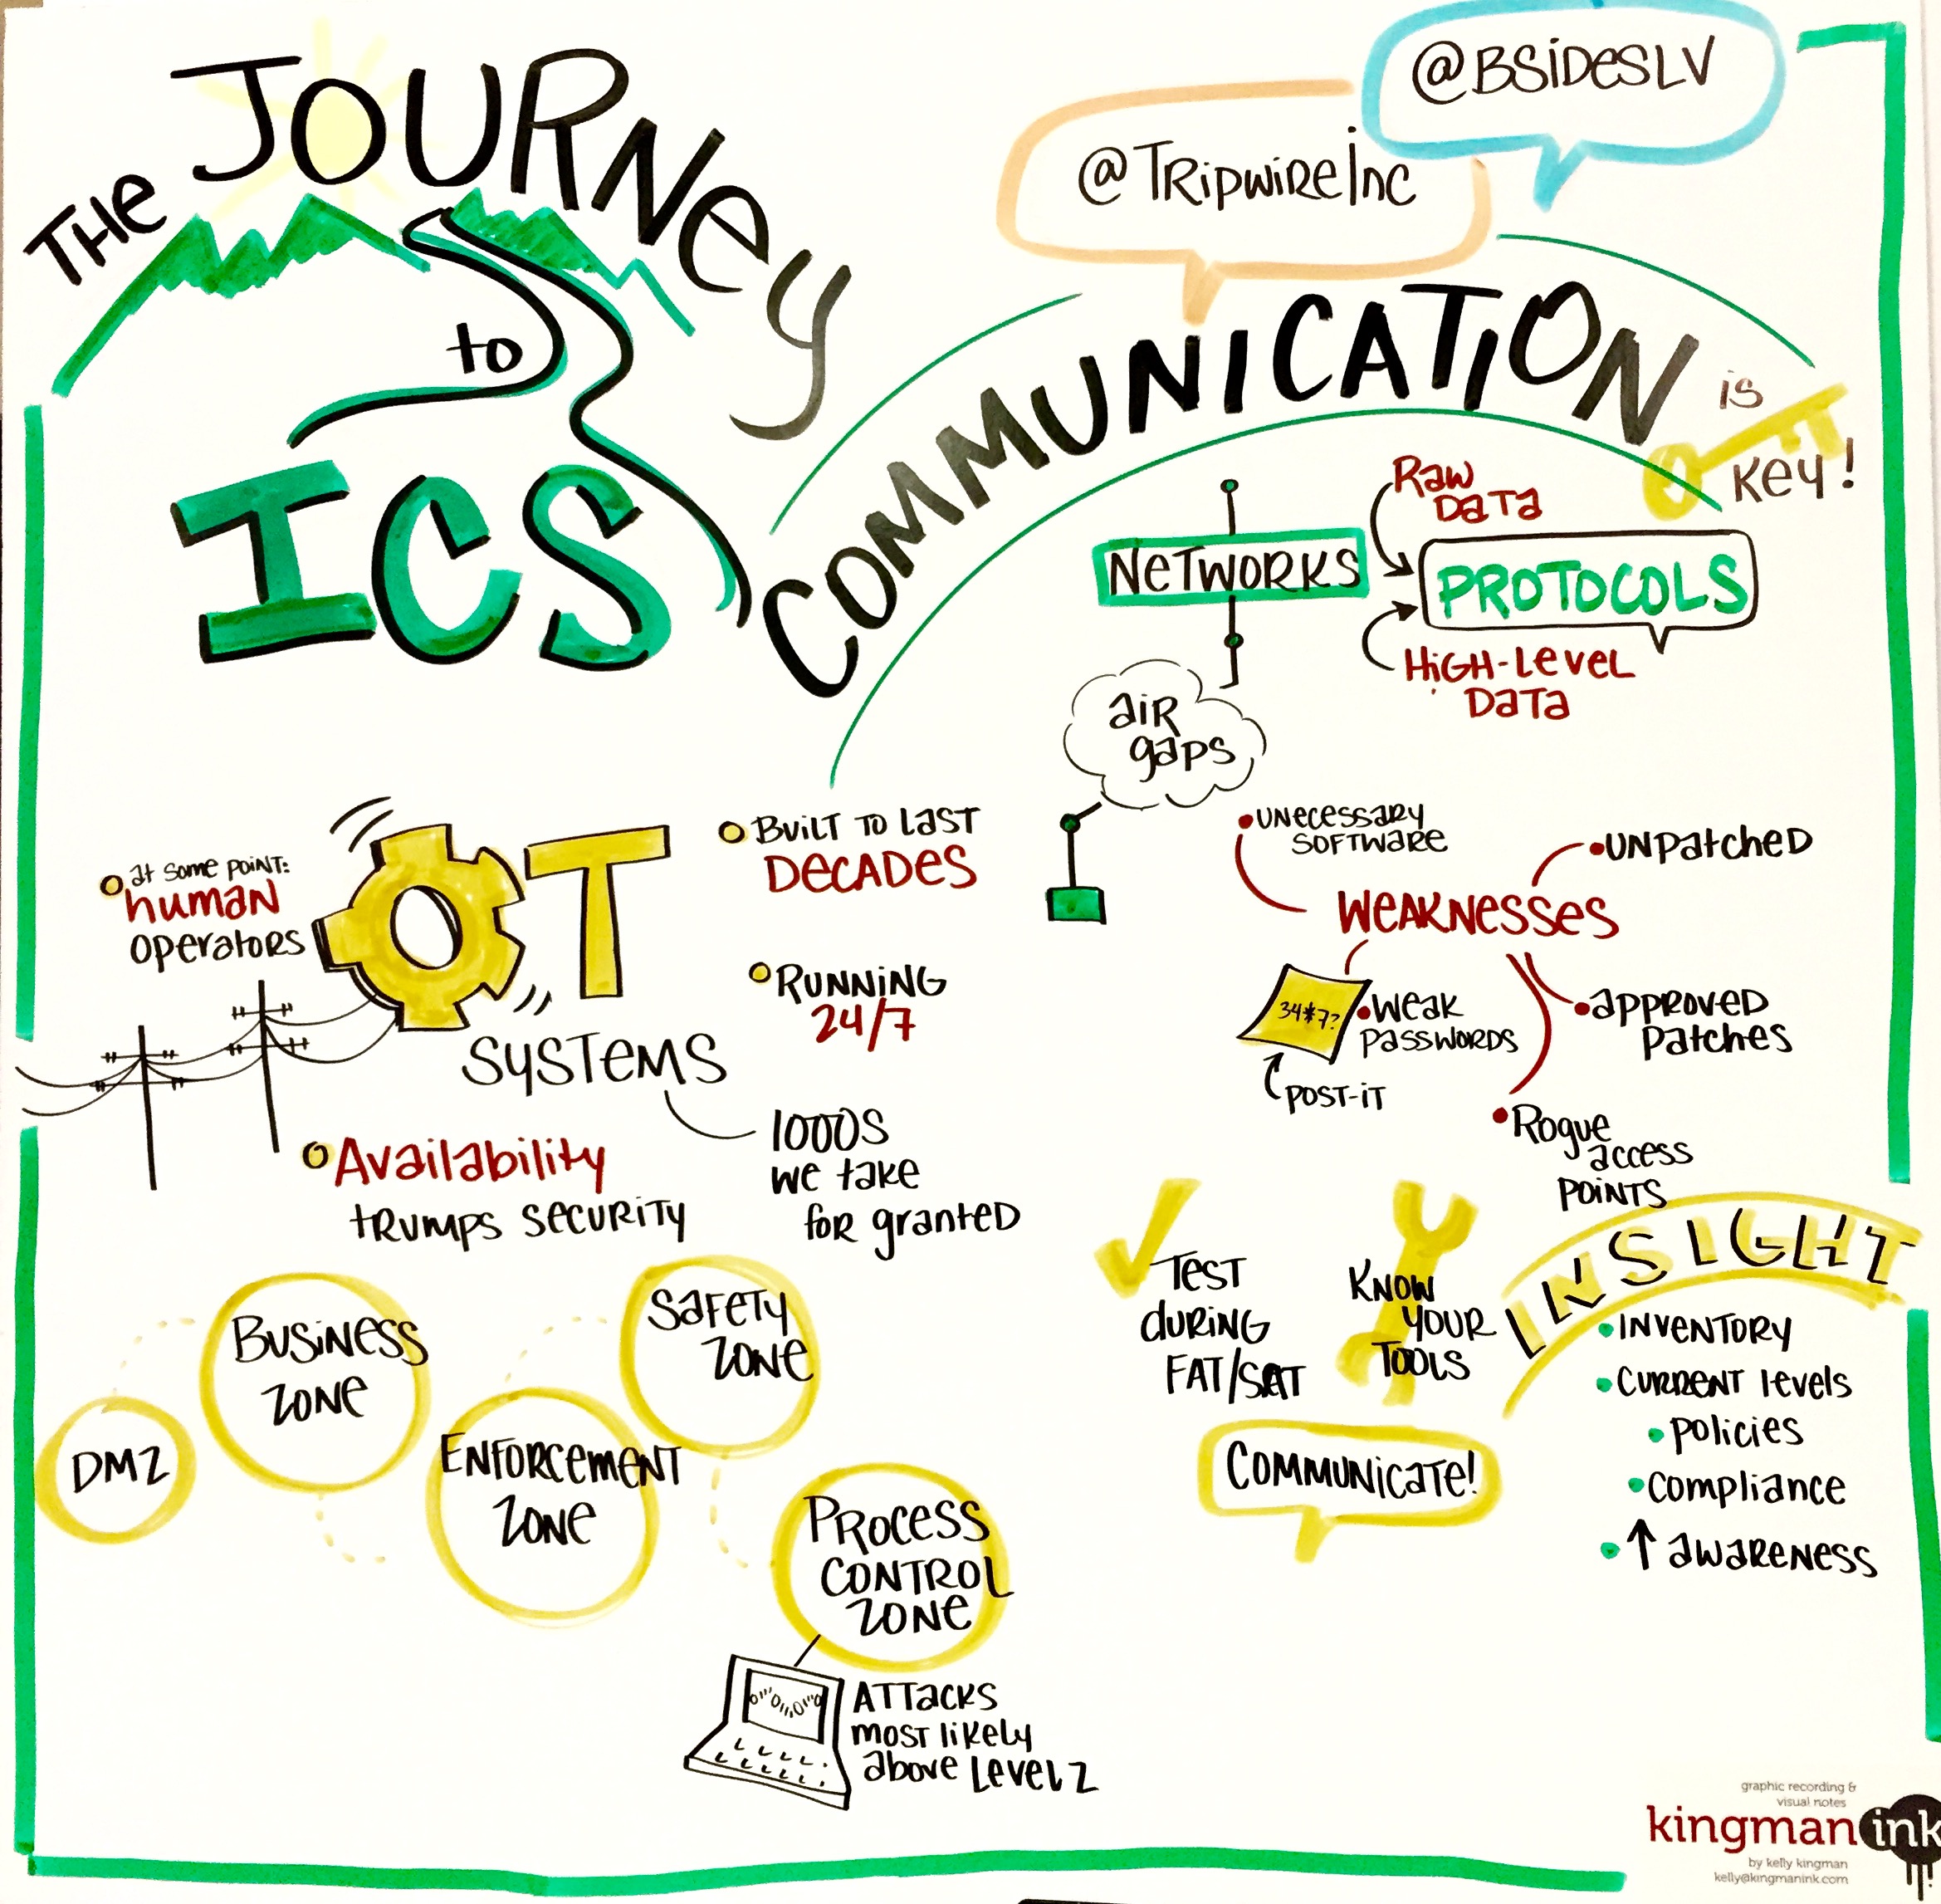 THE JOURNEY
to
ICS
@TRipwiReInc
@BSiDesLV
COMMUNICATiON
is
Key!
NeTWORKS
Raw
DaTa
PROTOCOLS
HiGH-Level
DaTa
aiR
gaps
at some point:
human
operators
OT
SYSTEMS
Built to last
DeCADes
RUNNiNG
24/7
1000s
we take
for granted
Availability
trumps security
UNecessary
Software
UNPatcheD
WeakNesses
34*7?
Weak
Passwords
Post-it
approved
patches
Rogue
access
points
DMZ
Business
Zone
Enforcement
Zone
Safety
Zone
Process
Control
Zone
Attacks
most likely
above Level 2
Test
during
FAT/SAT
Know
your
Tools
Communicate!
INSIGHT
INVENTORY
CURRENT levels
policies
compliance
↑ awareness
graphic recording &
visual notes
kingmanink
by kelly kingman
kelly@kingmanink.com